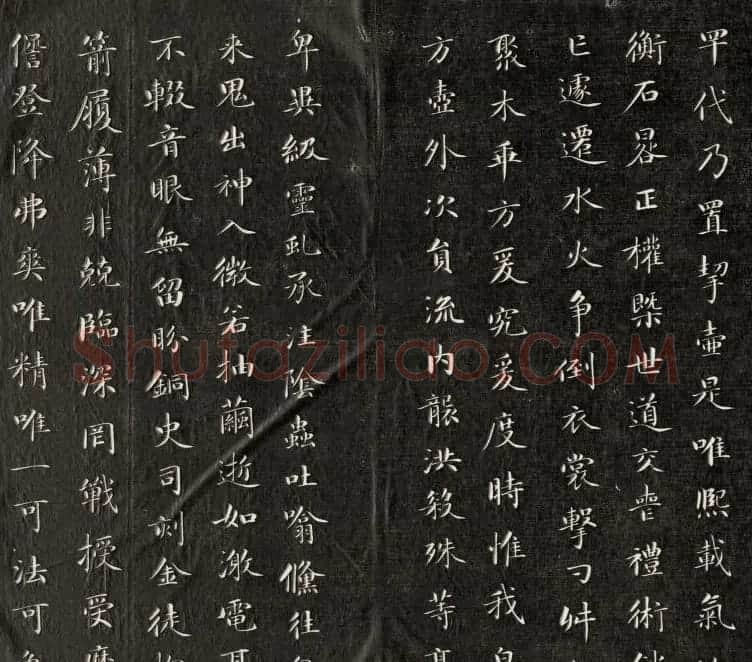 罕代乃置挈壷是唯熙載氣
衡石晷正權槩世道交喪禮術
亡遽遷水火争倒衣裳擊刁舛
聚木乖方爰究爰度時惟我皇
方壺外次員流内襲洪殺殊等高
卑異級靈虬承注陰蟲吐噏儵往
来鬼出神入微若抽繭逝如激電耳
不輟音眼無留盼銅史司刻金徒
箭履薄非兢臨深罔戰授受靡
僁登降弗爽唯精唯一可法可
Shufaziliao.COM